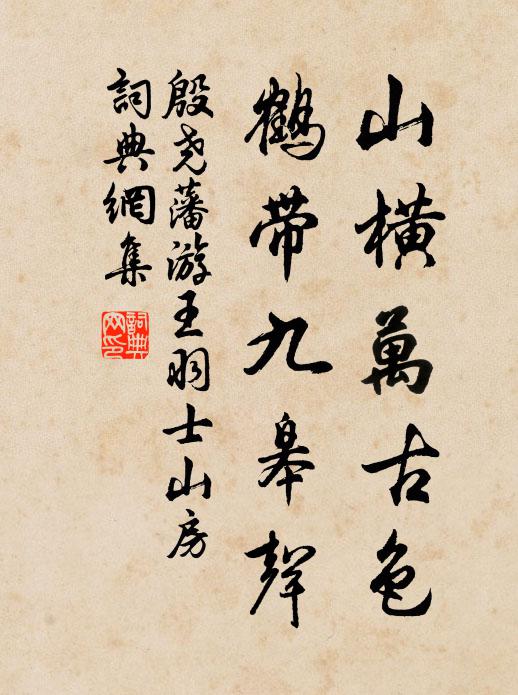 山橫萬古色
鶴帶九皋聲
殷堯藩游王羽士山房
詞典網集
詞典網印